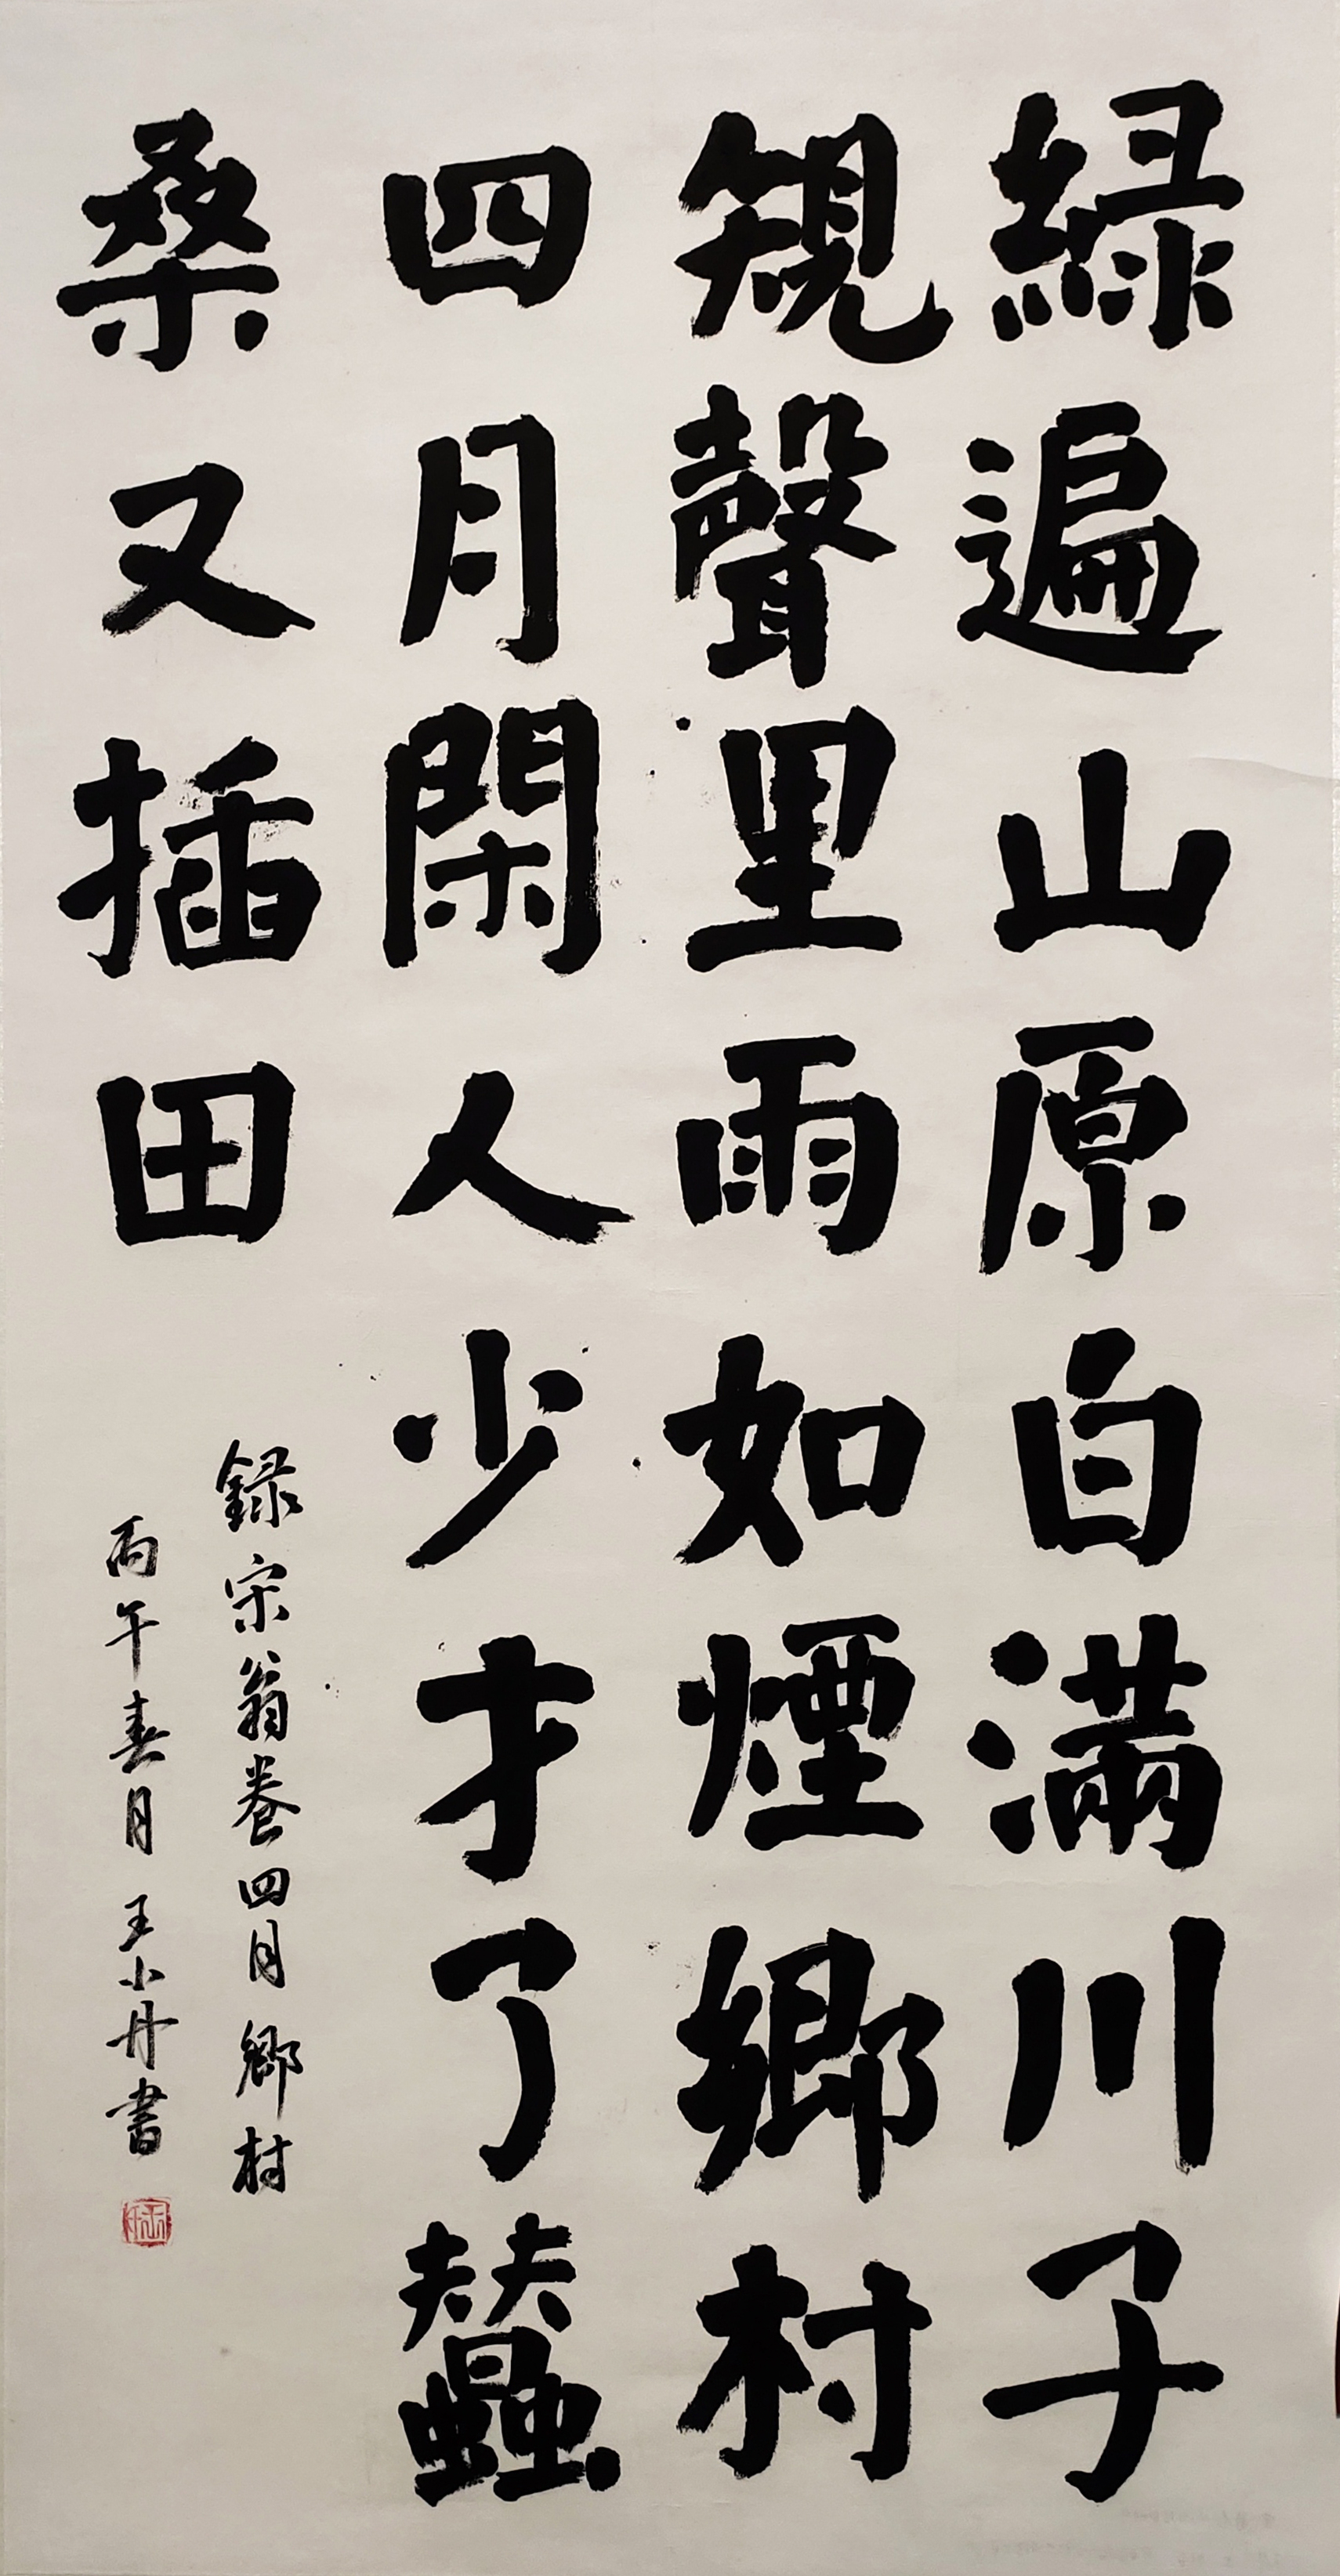 綠遍山原白滿川子
規聲里雨如煙鄉村
四月閑人少才了蠶
桑又插田
録宋翁卷四月鄉村
丙午春月王小丹書